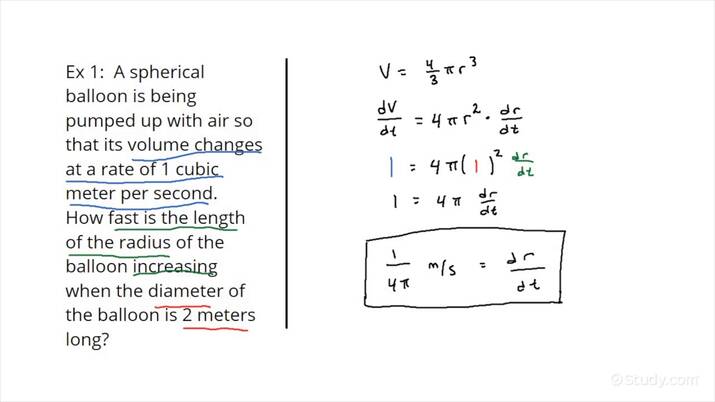 Ex 1: A spherical
balloon is being
pumped up with air so
that its volume changes
at a rate of 1 cubic
meter per second.
How fast is the length
of the radius of the
balloon increasing
when the diameter of
the balloon is 2 meters
long?
V = 4/3 πr³
dV/dt = 4πr² · dr/dt
1 = 4π(1)² dr/dt
1 = 4π dr/dt
1/4π m/s = dr/dt
©Study.com